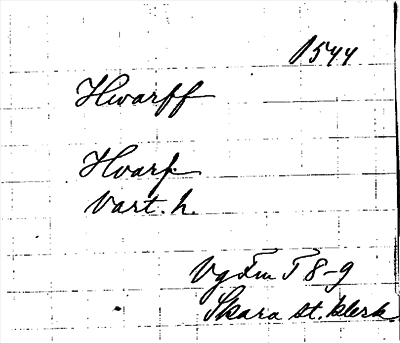 1544
Hwarff
Hvarf.
Vart. h.
Vg Fm T 8-9
Skara st. klerk.